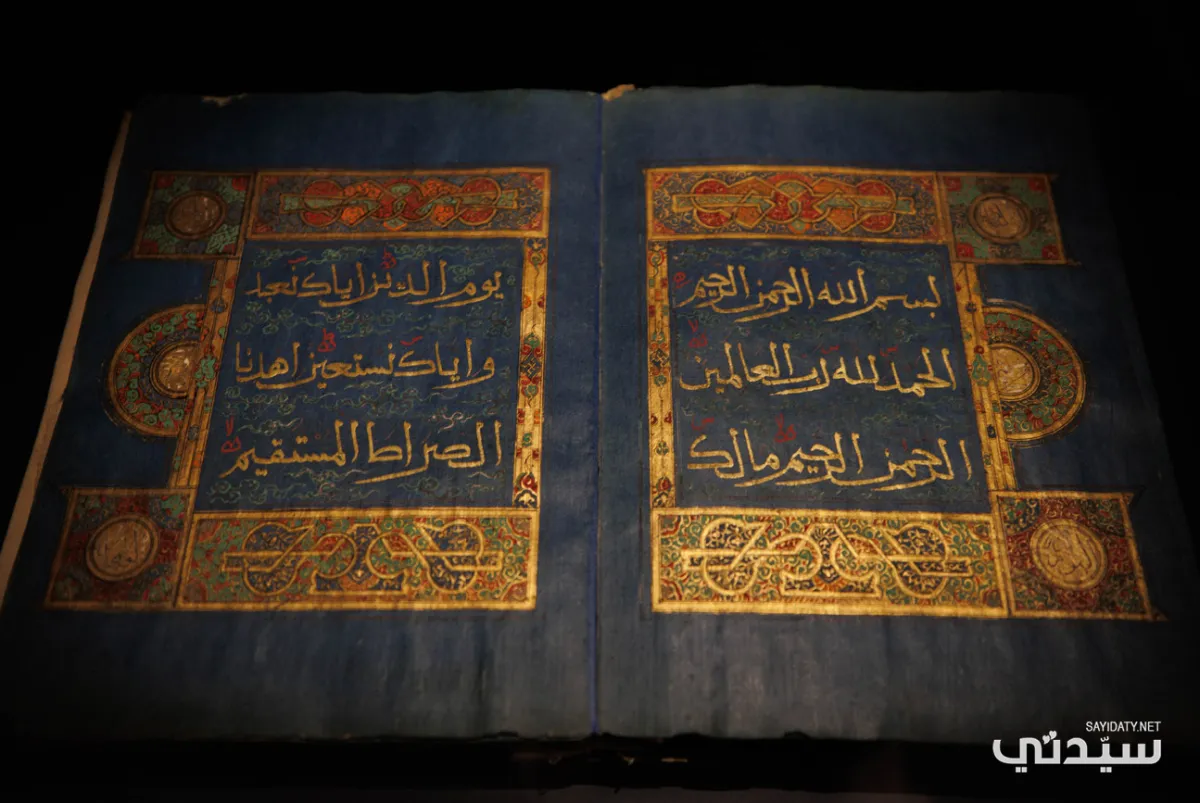 بسم الله الرحمن الرحيم
الحمد لله رب العالمين
الرحمن الرحيم مالك
يوم الدين اياك نعبد
واياك نستعين اهدنا
الصراط المستقيم
SAYIDATY.NET
سيّدتي